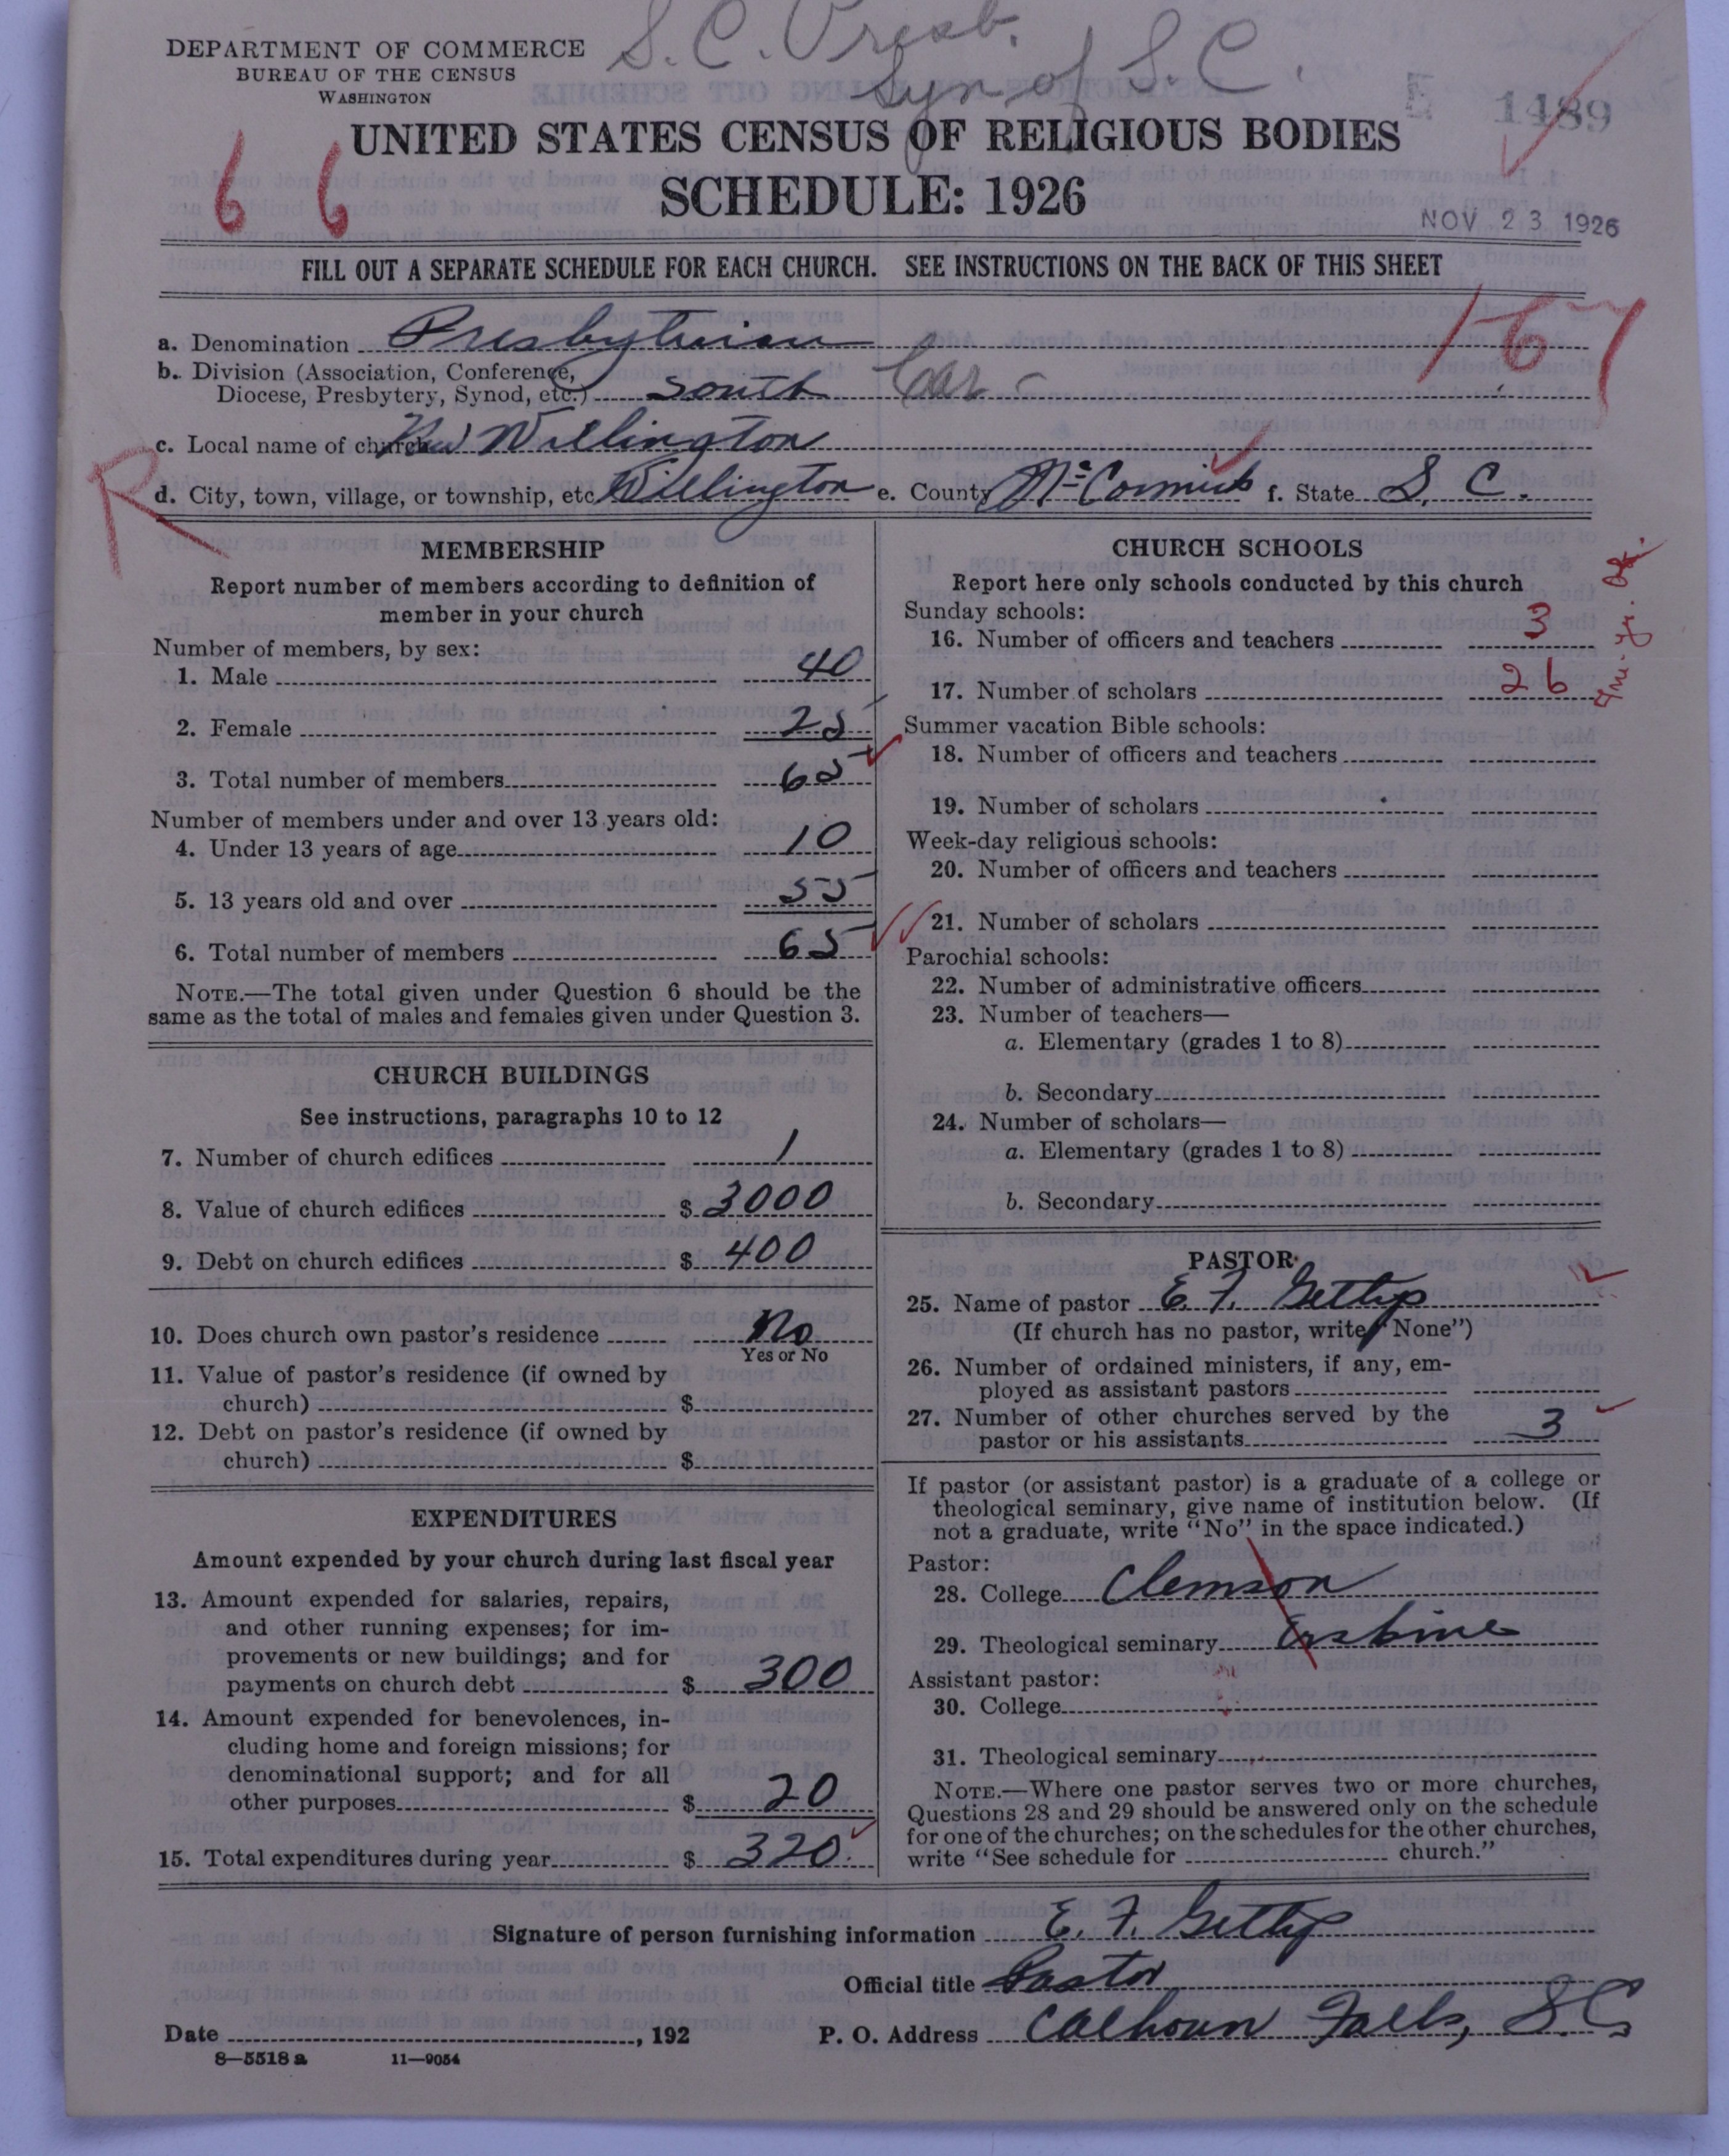 S. C. Presb.
Syn of S. C.
DEPARTMENT OF COMMERCE
BUREAU OF THE CENSUS
WASHINGTON
E 1489
UNITED STATES CENSUS OF RELIGIOUS BODIES
SCHEDULE: 1926
6 6
NOV 23 1926
FILL OUT A SEPARATE SCHEDULE FOR EACH CHURCH. SEE INSTRUCTIONS ON THE BACK OF THIS SHEET
167
a. Denomination Presbyterian
b. Division (Association, Conference,
Diocese, Presbytery, Synod, etc.) South Car
c. Local name of church New Willington
R
d. City, town, village, or township, etc Willington e. County McCormick f. State S. C.
MEMBERSHIP
Report number of members according to definition of
member in your church
Number of members, by sex:
1. Male 40
2. Female 25
3. Total number of members 65
Number of members under and over 13 years old:
4. Under 13 years of age 10
5. 13 years old and over 55
6. Total number of members 65
NOTE.—The total given under Question 6 should be the
same as the total of males and females given under Question 3.
CHURCH BUILDINGS
See instructions, paragraphs 10 to 12
7. Number of church edifices 1
8. Value of church edifices $ 3000
9. Debt on church edifices $ 400
10. Does church own pastor's residence No
Yes or No
11. Value of pastor's residence (if owned by
church) $
12. Debt on pastor's residence (if owned by
church) $
EXPENDITURES
Amount expended by your church during last fiscal year
13. Amount expended for salaries, repairs,
and other running expenses; for im-
provements or new buildings; and for
payments on church debt $ 300
14. Amount expended for benevolences, in-
cluding home and foreign missions; for
denominational support; and for all
other purposes $ 20
15. Total expenditures during year $ 320
CHURCH SCHOOLS
Report here only schools conducted by this church
Sunday schools:
16. Number of officers and teachers 3
17. Number of scholars 26
Summer vacation Bible schools:
18. Number of officers and teachers
19. Number of scholars
Week-day religious schools:
20. Number of officers and teachers
21. Number of scholars
Parochial schools:
22. Number of administrative officers
23. Number of teachers—
a. Elementary (grades 1 to 8)
b. Secondary
24. Number of scholars—
a. Elementary (grades 1 to 8)
b. Secondary
PASTOR
25. Name of pastor E. F. Gettys
(If church has no pastor, write "None")
26. Number of ordained ministers, if any, em-
ployed as assistant pastors
27. Number of other churches served by the
pastor or his assistants 3
If pastor (or assistant pastor) is a graduate of a college or
theological seminary, give name of institution below. (If
not a graduate, write "No" in the space indicated.)
Pastor:
28. College Clemson
29. Theological seminary Erskine
Assistant pastor:
30. College
31. Theological seminary
NOTE.—Where one pastor serves two or more churches,
Questions 28 and 29 should be answered only on the schedule
for one of the churches; on the schedules for the other churches,
write "See schedule for church."
Signature of person furnishing information E. F. Gettys
Official title Pastor
Date , 192 P. O. Address Calhoun Falls, S C
8—5518 a 11—9054